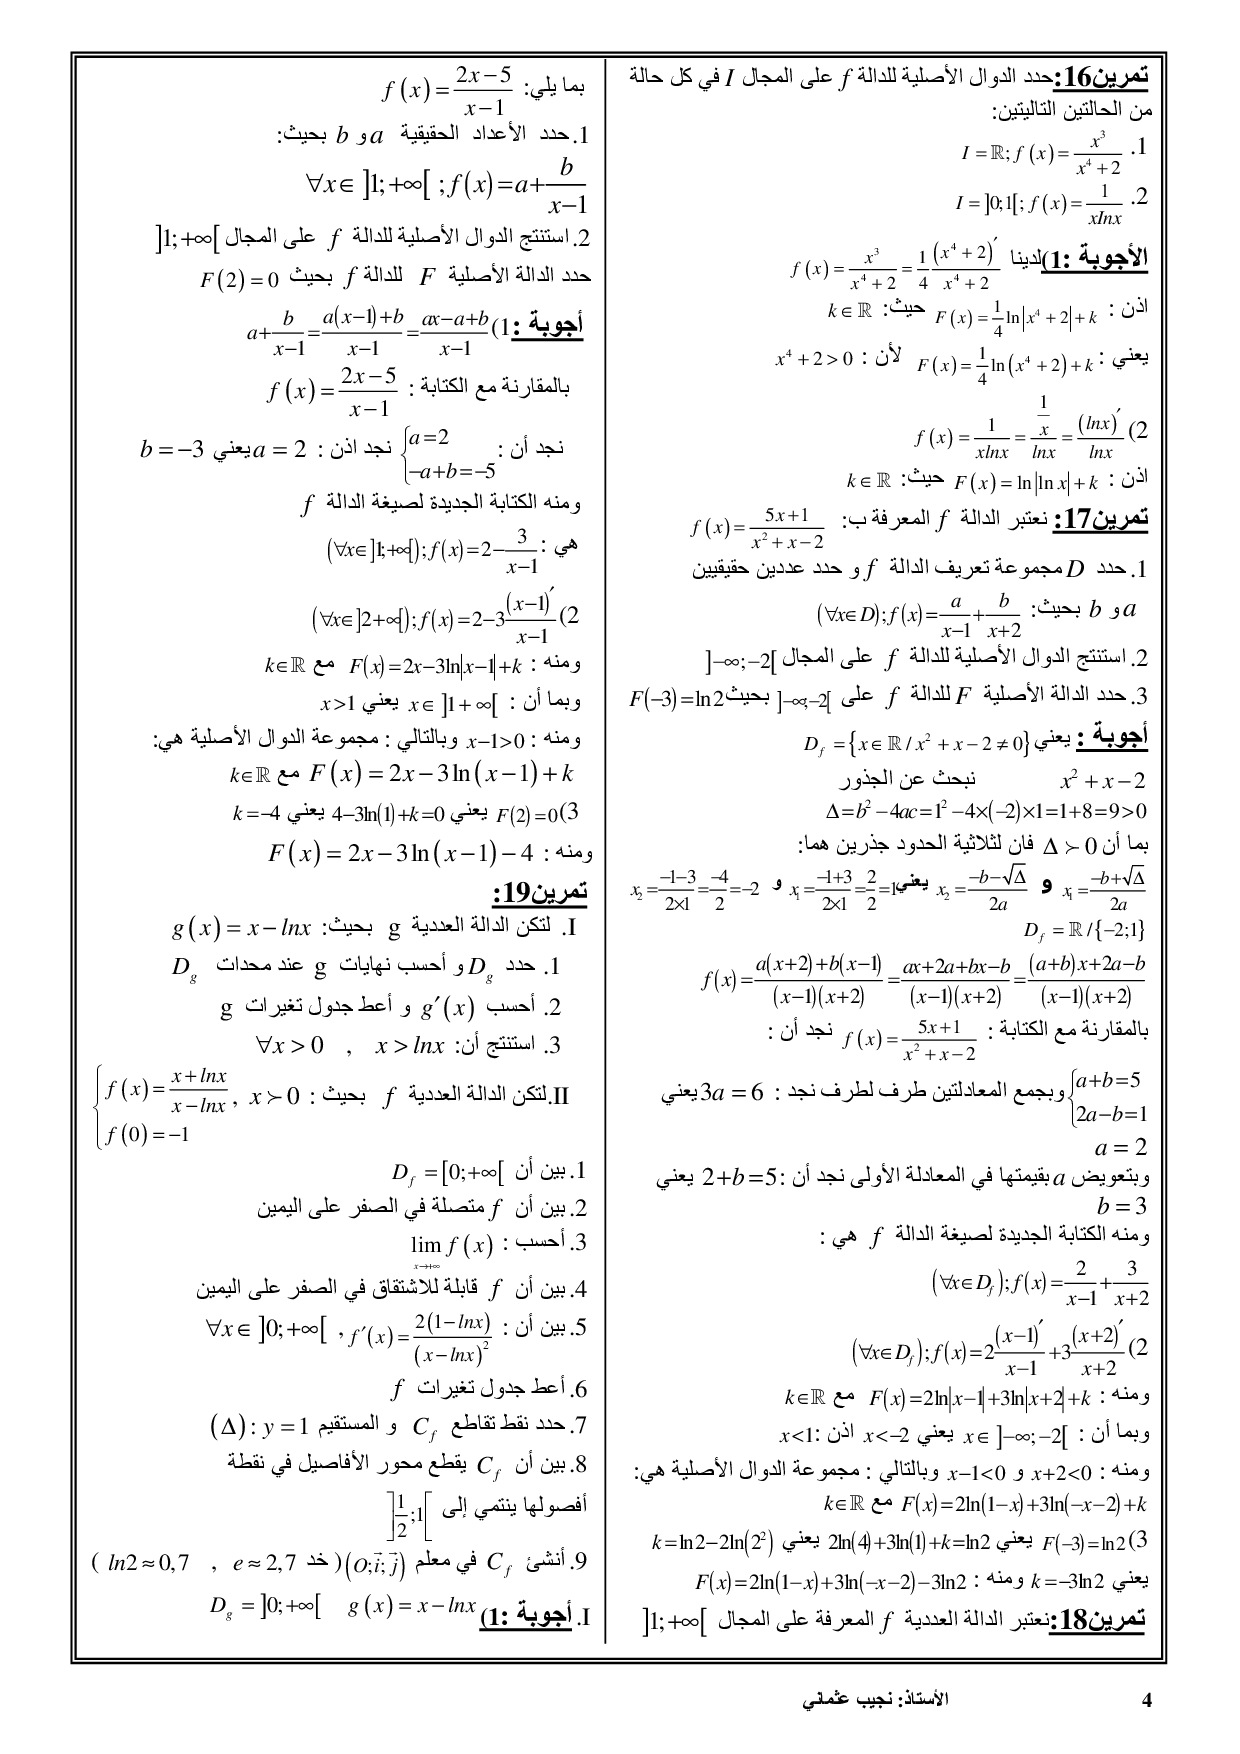 تمرين16: حدد الدوال الأصلية للدالة f على المجال I في كل حالة
من الحالتين التاليتين:
1. I = ℝ; f(x) = x³/(x⁴+2)
2. I = ]0;1[; f(x) = 1/(xlnx)
الأجوبة :1) لدينا f(x) = x³/(x⁴+2) = 1/4 (x⁴+2)′/(x⁴+2)
اذن : F(x) = 1/4 ln|x⁴+2| + k حيث: k ∈ ℝ
يعني : F(x) = 1/4 ln(x⁴+2) + k لأن : x⁴+2 > 0
2) f(x) = 1/(xlnx) = (1/x)/lnx = (lnx)′/lnx
اذن : F(x) = ln|ln x| + k حيث: k ∈ ℝ
تمرين17: نعتبر الدالة f المعرفة ب: f(x) = (5x+1)/(x²+x−2)
1. حدد D مجموعة تعريف الدالة f و حدد عددين حقيقيين
a و b بحيث: (∀x∈D); f(x) = a/(x−1) + b/(x+2)
2. استنتج الدوال الأصلية للدالة f على المجال ]−∞;−2[
3. حدد الدالة الأصلية F للدالة f على ]−∞;−2[ بحيث F(−3) = ln2
أجوبة : يعني D_f = {x∈ℝ / x²+x−2 ≠ 0}
x²+x−2 نبحث عن الجذور
Δ = b²−4ac = 1²−4×(−2)×1 = 1+8 = 9 > 0
بما أن Δ ≻ 0 فان لثلاثية الحدود جذرين هما:
x₁ = (−b+√Δ)/2a و x₂ = (−b−√Δ)/2a يعني x₁ = (−1+3)/(2×1) = 2/2 = 1 و x₂ = (−1−3)/(2×1) = −4/2 = −2
D_f = ℝ/{−2;1}
f(x) = (a(x+2)+b(x−1))/((x−1)(x+2)) = (ax+2a+bx−b)/((x−1)(x+2)) = ((a+b)x+2a−b)/((x−1)(x+2))
بالمقارنة مع الكتابة : f(x) = (5x+1)/(x²+x−2) نجد أن :
{a+b=5 ; 2a−b=1 وبجمع المعادلتين طرف لطرف نجد : 3a = 6 يعني
a = 2
وبتعويض a بقيمتها في المعادلة الأولى نجد أن : 2+b=5 يعني
b = 3
ومنه الكتابة الجديدة لصيغة الدالة f هي :
(∀x∈D_f); f(x) = 2/(x−1) + 3/(x+2)
2) (∀x∈D_f); f(x) = 2(x−1)′/(x−1) + 3(x+2)′/(x+2)
ومنه : F(x) = 2ln|x−1| + 3ln|x+2| + k مع k∈ℝ
وبما أن : x ∈ ]−∞;−2[ يعني x<−2 اذن : x<1
ومنه : x+2<0 و x−1<0 وبالتالي : مجموعة الدوال الأصلية هي:
F(x) = 2ln(1−x) + 3ln(−x−2) + k مع k∈ℝ
3) F(−3) = ln2 يعني 2ln(4)+3ln(1)+k = ln2 يعني k = ln2−2ln(2²)
يعني k = −3ln2 ومنه : F(x) = 2ln(1−x)+3ln(−x−2)−3ln2
تمرين18: نعتبر الدالة العددية f المعرفة على المجال ]1;+∞[
بما يلي: f(x) = (2x−5)/(x−1)
1. حدد الأعداد الحقيقية a و b بحيث:
∀x∈ ]1;+∞[ ; f(x) = a + b/(x−1)
2. استنتج الدوال الأصلية للدالة f على المجال ]1;+∞[
حدد الدالة الأصلية F للدالة f بحيث F(2) = 0
أجوبة :1) a + b/(x−1) = (a(x−1)+b)/(x−1) = (ax−a+b)/(x−1)
بالمقارنة مع الكتابة : f(x) = (2x−5)/(x−1)
نجد أن : {a=2 ; −a+b=−5 نجد اذن : a = 2 يعني b = −3
ومنه الكتابة الجديدة لصيغة الدالة f
هي : (∀x∈]1;+∞[); f(x) = 2 − 3/(x−1)
2) (∀x∈]2+∞[); f(x) = 2−3(x−1)′/(x−1)
ومنه : F(x) = 2x−3ln|x−1|+k مع k∈ℝ
وبما أن : x∈ ]1+∞[ يعني x>1
ومنه : x−1>0 وبالتالي : مجموعة الدوال الأصلية هي:
F(x) = 2x−3ln(x−1)+k مع k∈ℝ
3) F(2)=0 يعني 4−3ln(1)+k=0 يعني k=−4
ومنه : F(x) = 2x−3ln(x−1)−4
تمرين19:
I. لتكن الدالة العددية g بحيث: g(x) = x − lnx
1. حدد D_g و أحسب نهايات g عند محدات D_g
2. أحسب g′(x) و أعط جدول تغيرات g
3. استنتج أن: ∀x > 0 , x > lnx
II. لتكن الدالة العددية f بحيث : {f(x) = (x+lnx)/(x−lnx) , x ≻ 0 ; f(0) = −1
1. بين أن D_f = [0;+∞[
2. بين أن f متصلة في الصفر على اليمين
3. أحسب : lim f(x) x→+∞
4. بين أن f قابلة للاشتقاق في الصفر على اليمين
5. بين أن : f′(x) = 2(1−lnx)/(x−lnx)² , ∀x∈ ]0;+∞[
6. أعط جدول تغيرات f
7. حدد نقط تقاطع C_f و المستقيم (Δ): y = 1
8. بين أن C_f يقطع محور الأفاصيل في نقطة
أفصولها ينتمي إلى ]1/2;1[
9. أنشئ C_f في معلم (O;i⃗;j⃗) ( خد e ≈ 2,7 , ln2 ≈ 0,7 )
I. أجوبة :1) g(x) = x − lnx D_g = ]0;+∞[
الأستاذ: نجيب عثماني
4